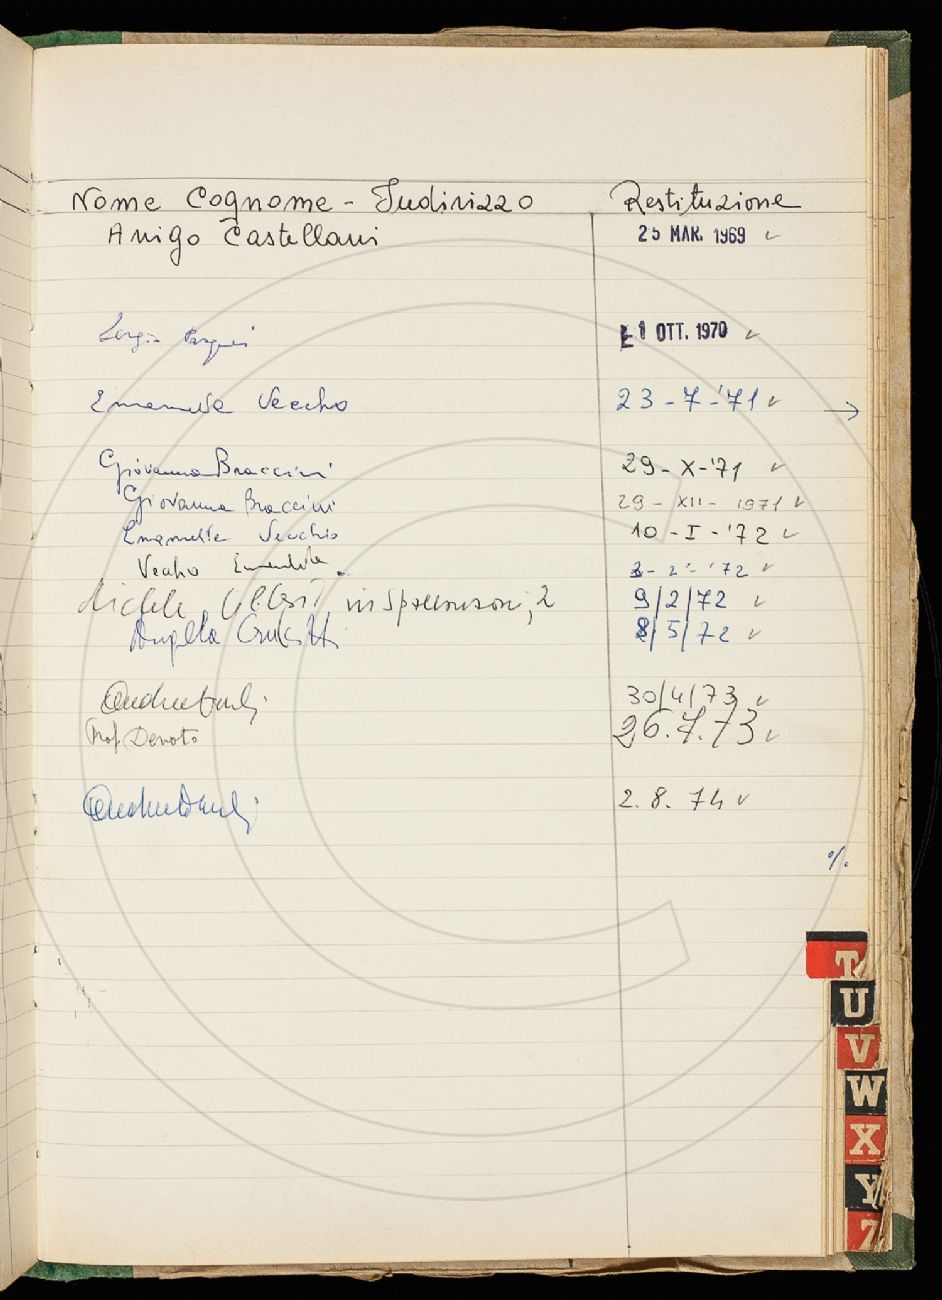 Nome Cognome - Indirizzo Restituzione
Arrigo Castellani 25 MAR. 1969
Sergio 1 OTT. 1970
Emanuela Vecchio 23-7-'71
Giovanna Braccini 29-X-'71
Giovanna Braccini 29-XII-1971
Emanuela Vecchio 10-I-'72
Vecchio Emanuela 2-'72
via 2 9/2/72
Angela 8/5/72
30/4/73
Prof. Devoto 26.7.73
2.8.74
%.
T
U
V
W
X
Y
Z